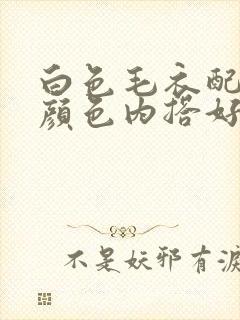 白色毛衣配
颜色内搭好
不是妖邪有泪